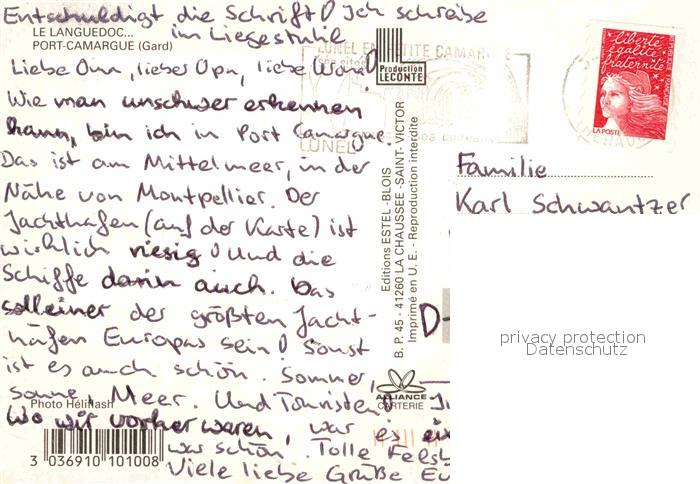 Entschuldigt die Schrift! Ich schreibe
im Liegestuhle
LE LANGUEDOC...
PORT-CAMARGUE (Gard)
Liebe Oma, lieber Opa, liebe
Wie man unschwer erkennen
kann, bin ich in Port Camargue.
Das ist am Mittelmeer, in der
Nähe von Montpellier. Der
Jachthafen (auf der Karte) ist
wirklich riesig! Und die
Schiffe darin auch. Das
soll einer der größten Jacht-
häfen Europas sein! Sonst
ist es auch schön. Sommer,
Sonne, Meer. Und Touristen!
Wo wir vorher waren, war es
war schön. Tolle
Viele liebe Grüße
Photo Héliflash
3 036910 101008
LUNEL EN PETITE CAMARGUE
LUNEL
Production
LECONTE
Editions ESTEL -BLOIS
B. P. 45 - 41260 LA CHAUSSEE -SAINT- VICTOR
Imprimé en U. E. - Reproduction interdite
ALLIANCE
CARTERIE
liberté
égalité
fraternité
LA POSTE
Familie
Karl Schwantzer
D-
privacy protection
Datenschutz